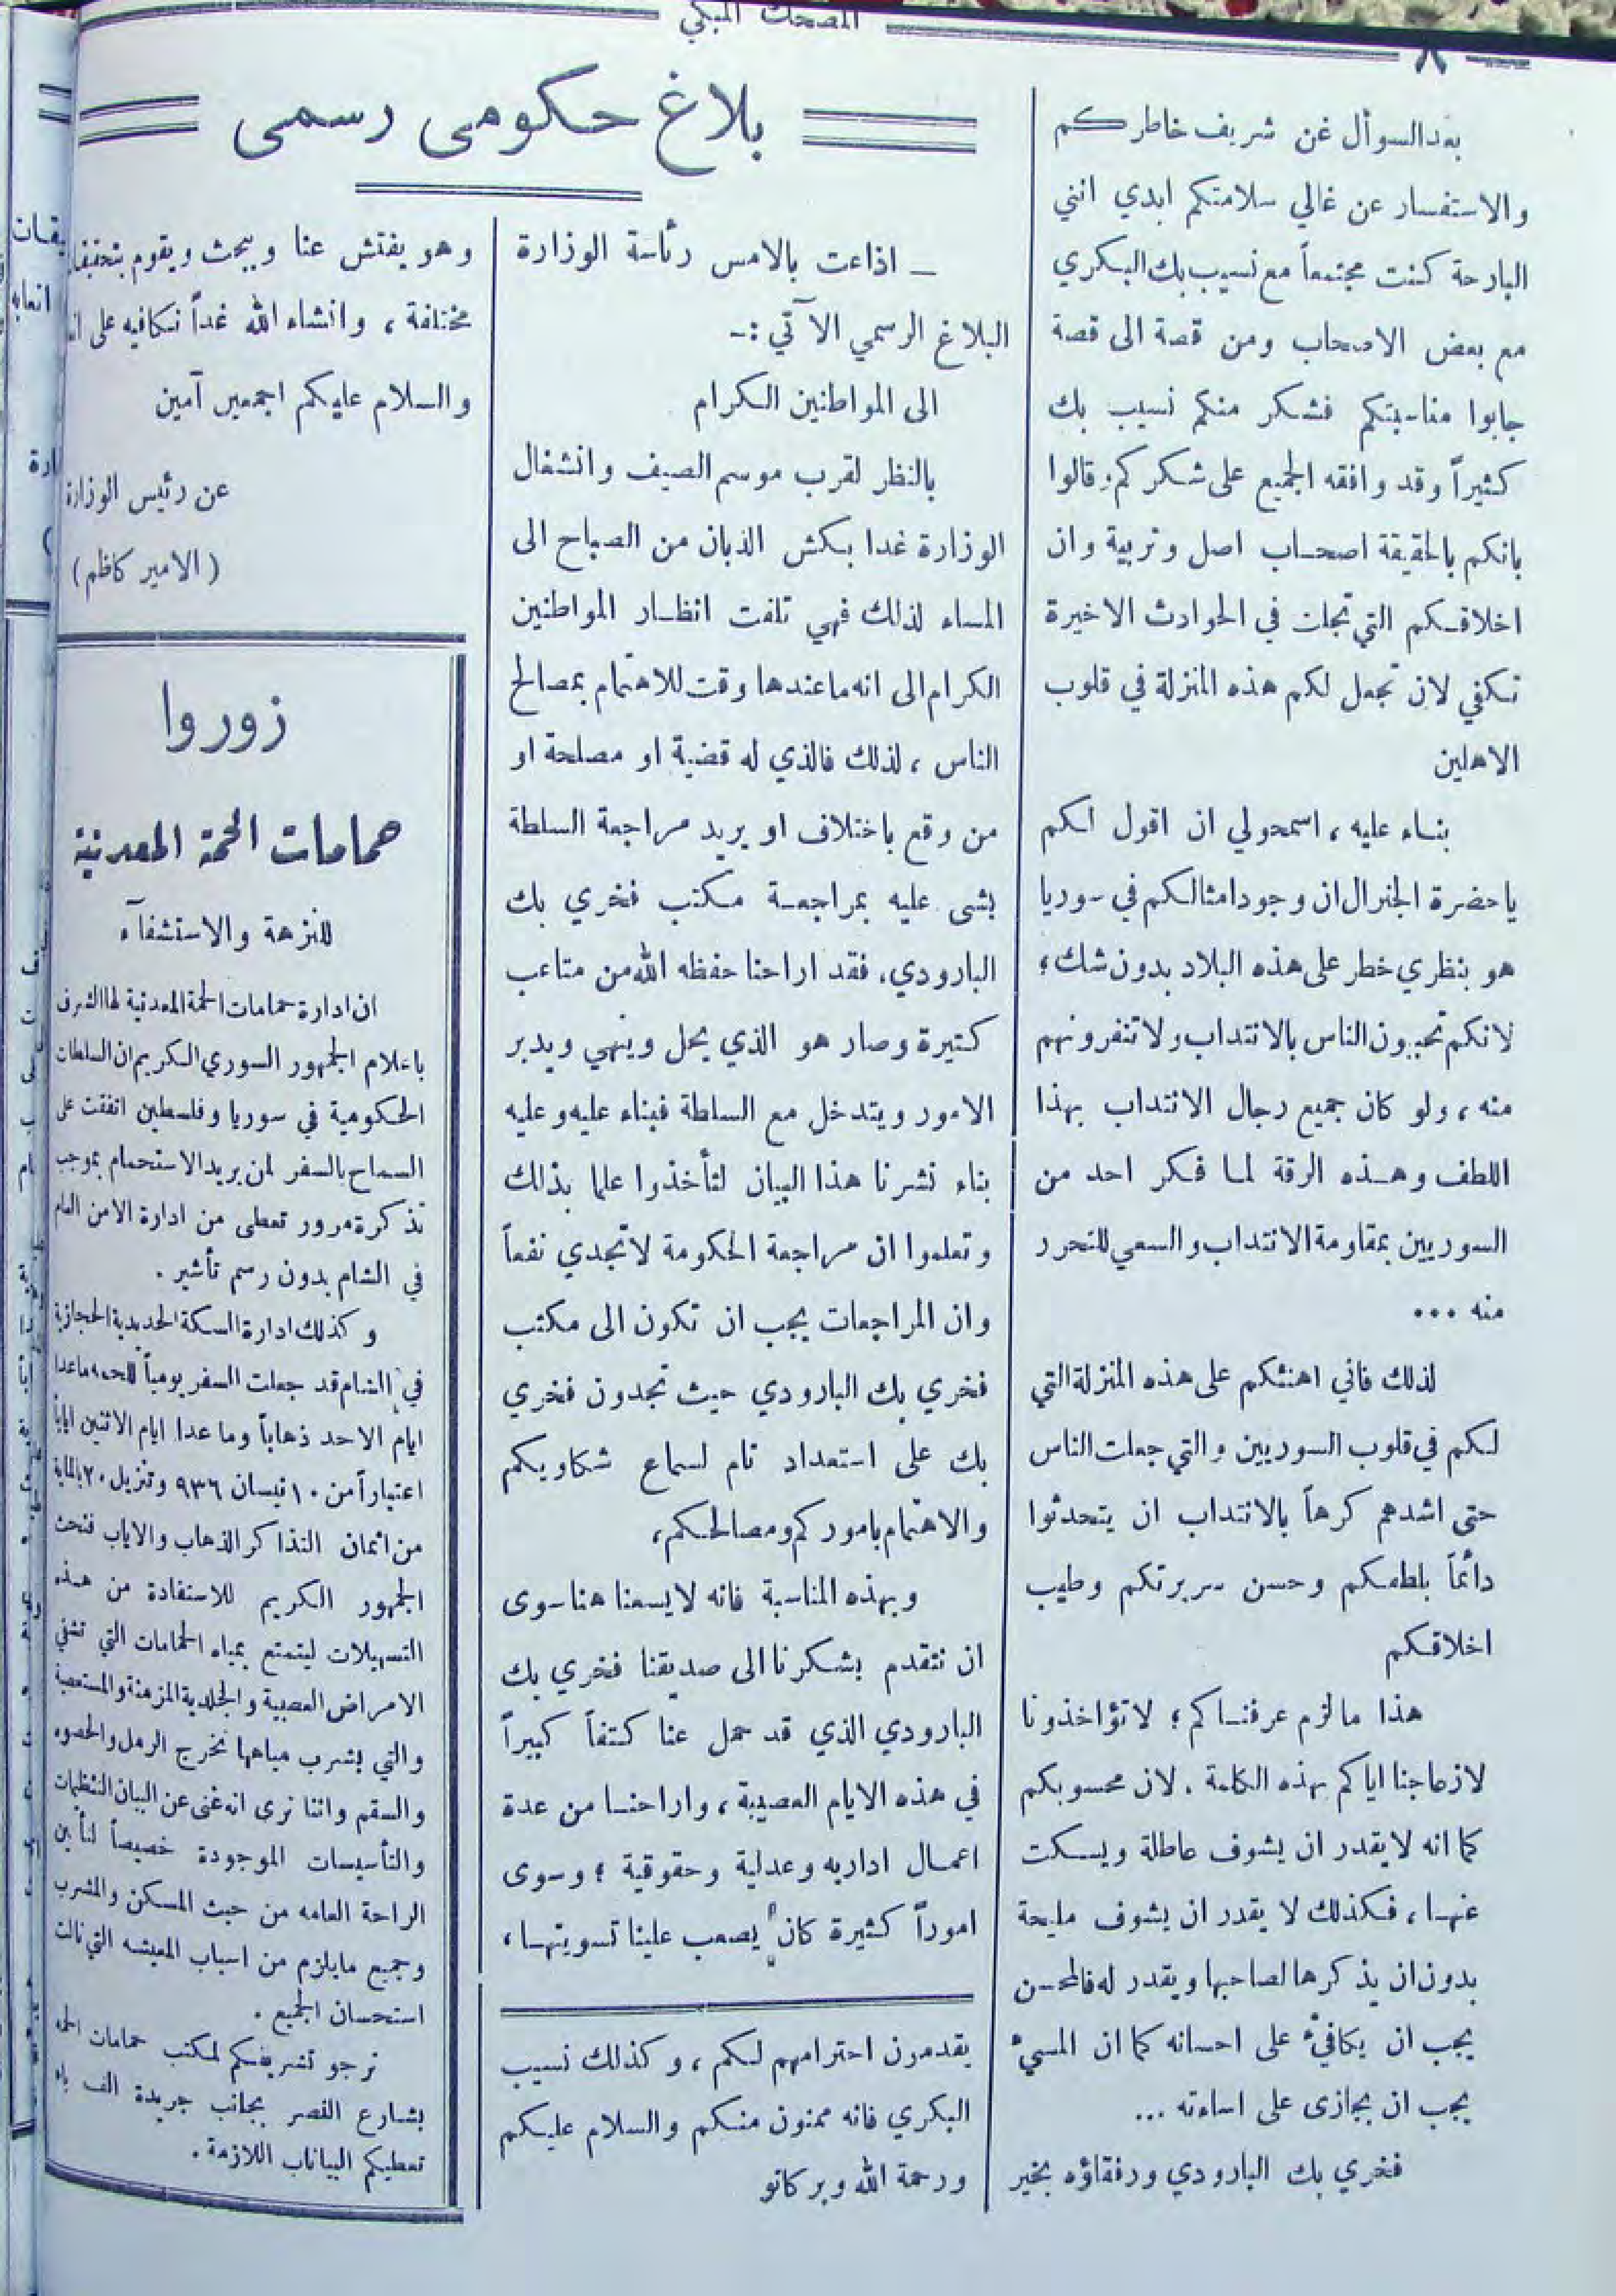 المضحك المبكي
٨
بعد السوأل عن شريف خاطركم
والاستفسار عن غالي سلامتكم ابدي انني
البارحة كنت مجتمعاً مع نسيب بك البكري
مع بعض الاصحاب ومن قصة الى قصة
جابوا مناسبتكم فشكر منكم نسيب بك
كثيراً وقد وافقه الجميع على شكركم، وقالوا
بانكم بالحقيقة اصحاب اصل وتربية وان
اخلاقكم التي تجلت في الحوادث الاخيرة
تكفي لان تجعل لكم هذه المنزلة في قلوب
الاهلين
بناء عليه، اسمحولي ان اقول لكم
ياحضرة الجنرال ان وجود امثالكم في سوريا
هو بنظري خطر على هذه البلاد بدون شك؛
لانكم تحببون الناس بالانتداب ولا تنفرونهم
منه، ولو كان جميع رجال الانتداب بهذا
اللطف وهذه الرقة لما فكر احد من
السوريين بمقاومة الانتداب والسعي للتحرر
منه ...
لذلك فاني اهنئكم على هذه المنزلة التي
لكم في قلوب السوريين والتي جعلت الناس
حتى اشدهم كرهاً بالانتداب ان يتحدثوا
دائماً بلطفكم وحسن سريرتكم وطيب
اخلاقكم
هذا مالزم عرفناكم؛ لاتؤاخذونا
لازعاجنا اياكم بهذه الكلمة. لان محسوبكم
كما انه لايقدر ان يشوف عاطلة ويسكت
عنها، فكذلك لا يقدر ان يشوف مليحة
بدون ان يذكرها لصاحبها ويقدر له فالمحسن
يجب ان يكافيء على احسانه كما ان المسيء
يجب ان يجازى على اساءته ...
فخري بك البارودي ورفقاؤه بخير
يقدمون احترامهم لكم، وكذلك نسيب
البكري فانه ممنون منكم والسلام عليكم
ورحمة الله وبركاتو
بلاغ حكومي رسمي
ــ اذاعت بالامس رئاسة الوزارة
البلاغ الرسمي الآتي :ــ
الى المواطنين الكرام
بالنظر لقرب موسم الصيف وانشغال
الوزارة غدا بكش الذبان من الصباح الى
المساء لذلك فهي تلفت انظار المواطنين
الكرام الى انه ماعندها وقت للاهتمام بمصالح
الناس، لذلك فالذي له قضية او مصلحة او
من وقع باختلاف او يريد مراجعة السلطة
بشى عليه بمراجعة مكتب فخري بك
البارودي، فقد اراحنا حفظه الله من متاعب
كتيرة وصار هو الذي يحل وينهي ويدبر
الامور ويتدخل مع السلطة فبناء عليه وعليه
بناء نشرنا هذا البيان لتأخذوا علما بذلك
وتعلموا ان مراجعة الحكومة لاتجدي نفعاً
وان المراجعات يجب ان تكون الى مكتب
فخري بك البارودي حيث تجدون فخري
بك على استعداد تام لسماع شكاويكم
والاهتمام بامور كم ومصالحكم،
وبهذه المناسبة فانه لايسعنا هنا سوى
ان نتقدم بشكرنا الى صديقنا فخري بك
البارودي الذي قد حمل عنا كتفاً كبيراً
في هذه الايام العصيبة، واراحنا من عدة
اعمال اداريه وعدلية وحقوقية؛ وسوى
اموراً كثيرة كان يصعب علينا تسويتها،
وهو يفتش عنا ويبحث ويقوم بتحقيقات
مختلفة، وانشاء الله غداً نكافيه على
والسلام عليكم اجمعين آمين
عن رئيس الوزارة
(الامير كاظم)
زوروا
حمامات الحمة المعدنية
للنزهة والاستشفاء
ان ادارة حمامات الحمة المعدنية لها الشرف
باعلام الجمهور السوري الكريم ان السلطات
الحكومية في سوريا وفلسطين اتفقت على
السماح بالسفر لمن يريد الاستحمام بموجب
تذكرة مرور تعطى من ادارة الامن العام
في الشام بدون رسم تأشير.
وكذلك ادارة السكة الحديدية الحجازية
في الشام قد جعلت السفر يومياً للحمه ماعدا
ايام الاحد ذهاباً وما عدا ايام الاثنين اياباً
اعتباراً من ١٠ نيسان ٩٣٦ وتنزيل ٢٠ بالماية
من اثمان التذاكر الذهاب والاياب فنحث
الجمهور الكريم للاستفادة من هذه
التسهيلات ليتمتع بمياه الحمامات التي تشفي
الامراض العصبية والجلدية المزمنة والمستعصية
والتي بشرب مياهها تخرج الرمل والحصوه
والسقم واننا نرى انه غنى عن البيان التنظيمات
والتأسيسات الموجودة خصيصاً لتأمين
الراحة العامه من حيث المسكن والمشرب
وجميع مايلزم من اسباب المعيشه التي نالت
استحسان الجميع.
نرجو تشريفكم لمكتب حمامات الحمه
بشارع القصر بجانب جريدة الف باء
تعطيكم البيانات اللازمة.